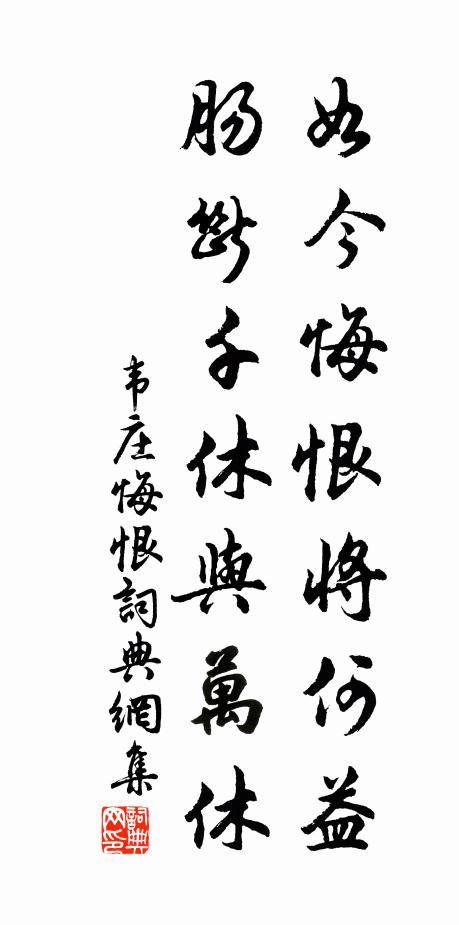 如今悔恨將何益
腸斷千休與萬休
韦庄悔恨詞典網集
詞典网印